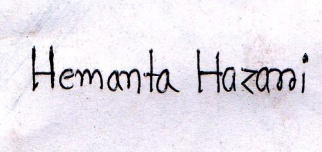 Hemanta Hazari